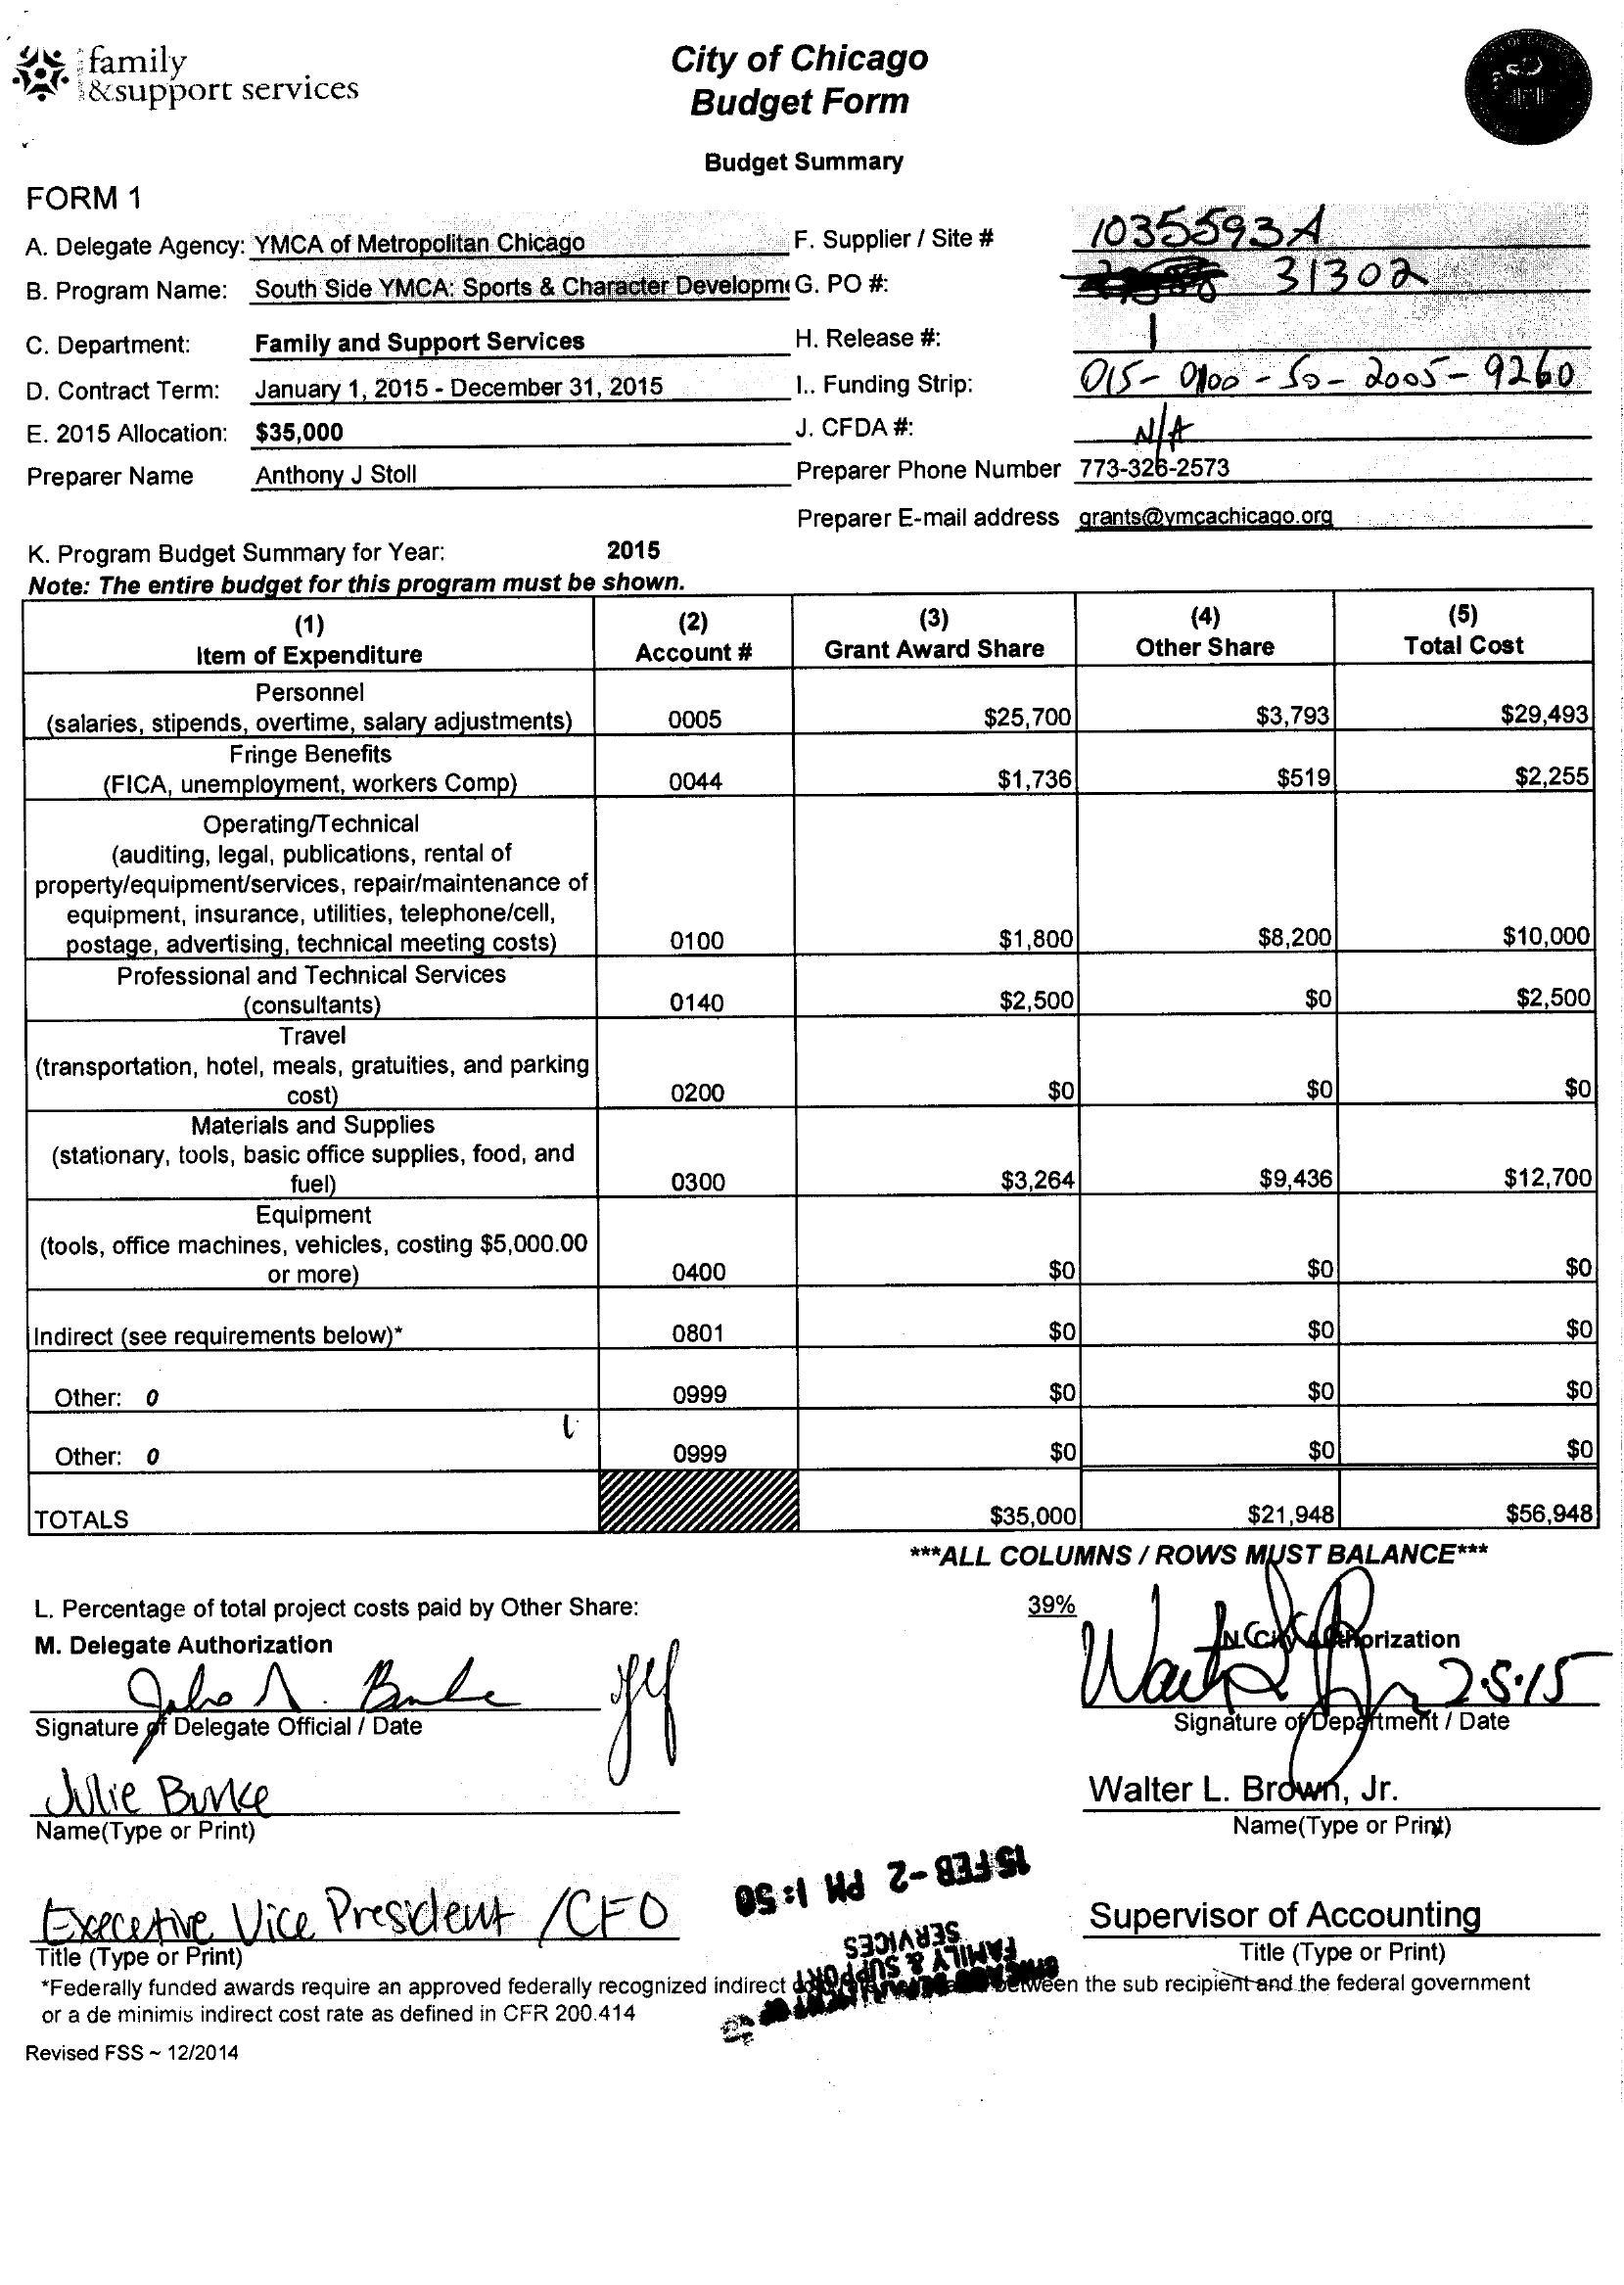 family
&support services
City of Chicago
Budget Form
Budget Summary
FORM 1
A. Delegate Agency: YMCA of Metropolitan Chicago
F. Supplier / Site # 1035593A
B. Program Name: South Side YMCA: Sports & Character Developm
G. PO #: 31302
C. Department: Family and Support Services
H. Release #: 1
D. Contract Term: January 1, 2015 - December 31, 2015
I.. Funding Strip: 015-0100-50-2005-9260
E. 2015 Allocation: $35,000
J. CFDA #: N/A
Preparer Name Anthony J Stoll
Preparer Phone Number 773-326-2573
Preparer E-mail address grants@ymcachicago.org
K. Program Budget Summary for Year: 2015
Note: The entire budget for this program must be shown.
(1) (2) (3) (4) (5)
Item of Expenditure Account # Grant Award Share Other Share Total Cost
Personnel
(salaries, stipends, overtime, salary adjustments) 0005 $25,700 $3,793 $29,493
Fringe Benefits
(FICA, unemployment, workers Comp) 0044 $1,736 $519 $2,255
Operating/Technical
(auditing, legal, publications, rental of
property/equipment/services, repair/maintenance of
equipment, insurance, utilities, telephone/cell,
postage, advertising, technical meeting costs) 0100 $1,800 $8,200 $10,000
Professional and Technical Services
(consultants) 0140 $2,500 $0 $2,500
Travel
(transportation, hotel, meals, gratuities, and parking
cost) 0200 $0 $0 $0
Materials and Supplies
(stationary, tools, basic office supplies, food, and
fuel) 0300 $3,264 $9,436 $12,700
Equipment
(tools, office machines, vehicles, costing $5,000.00
or more) 0400 $0 $0 $0
Indirect (see requirements below)* 0801 $0 $0 $0
Other: 0 0999 $0 $0 $0
Other: 0 0999 $0 $0 $0
TOTALS $35,000 $21,948 $56,948
***ALL COLUMNS / ROWS MUST BALANCE***
L. Percentage of total project costs paid by Other Share: 39%
M. Delegate Authorization
N. City Authorization
2.5.15
Signature of Delegate Official / Date
Signature of Department / Date
Julie Burke
Walter L. Brown, Jr.
Name(Type or Print)
Name(Type or Print)
15 FEB -2 PM 1:50
Executive Vice President /CFO
Supervisor of Accounting
Title (Type or Print)
Title (Type or Print)
CHICAGO DEPARTMENT OF
FAMILY & SUPPORT
SERVICES
*Federally funded awards require an approved federally recognized indirect between the sub recipient and the federal government
or a de minimis indirect cost rate as defined in CFR 200.414
Revised FSS ~ 12/2014